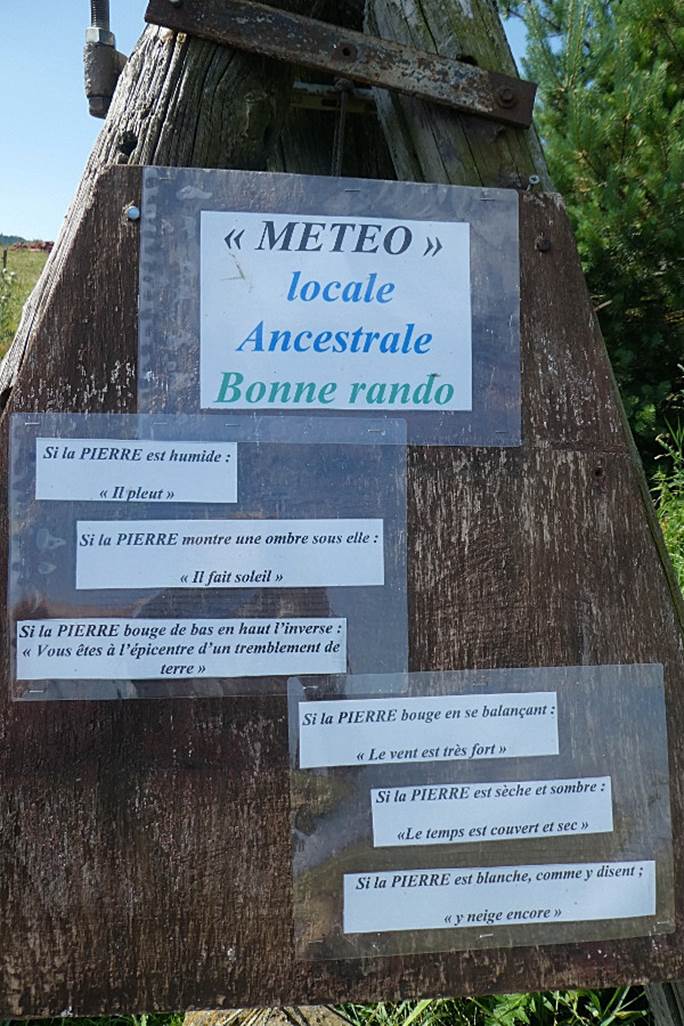 « METEO »
locale
Ancestrale
Bonne rando
Si la PIERRE est humide :
« Il pleut »
Si la PIERRE montre une ombre sous elle :
« Il fait soleil »
Si la PIERRE bouge de bas en haut l’inverse :
« Vous êtes à l’épicentre d’un tremblement de
terre »
Si la PIERRE bouge en se balançant :
« Le vent est très fort »
Si la PIERRE est sèche et sombre :
«Le temps est couvert et sec »
Si la PIERRE est blanche, comme y disent ;
« y neige encore »